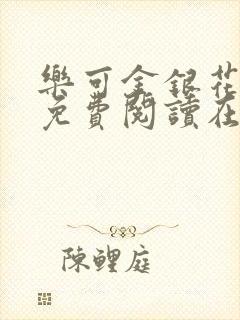 樂可金銀花
免費閱讀在
陳鯉庭